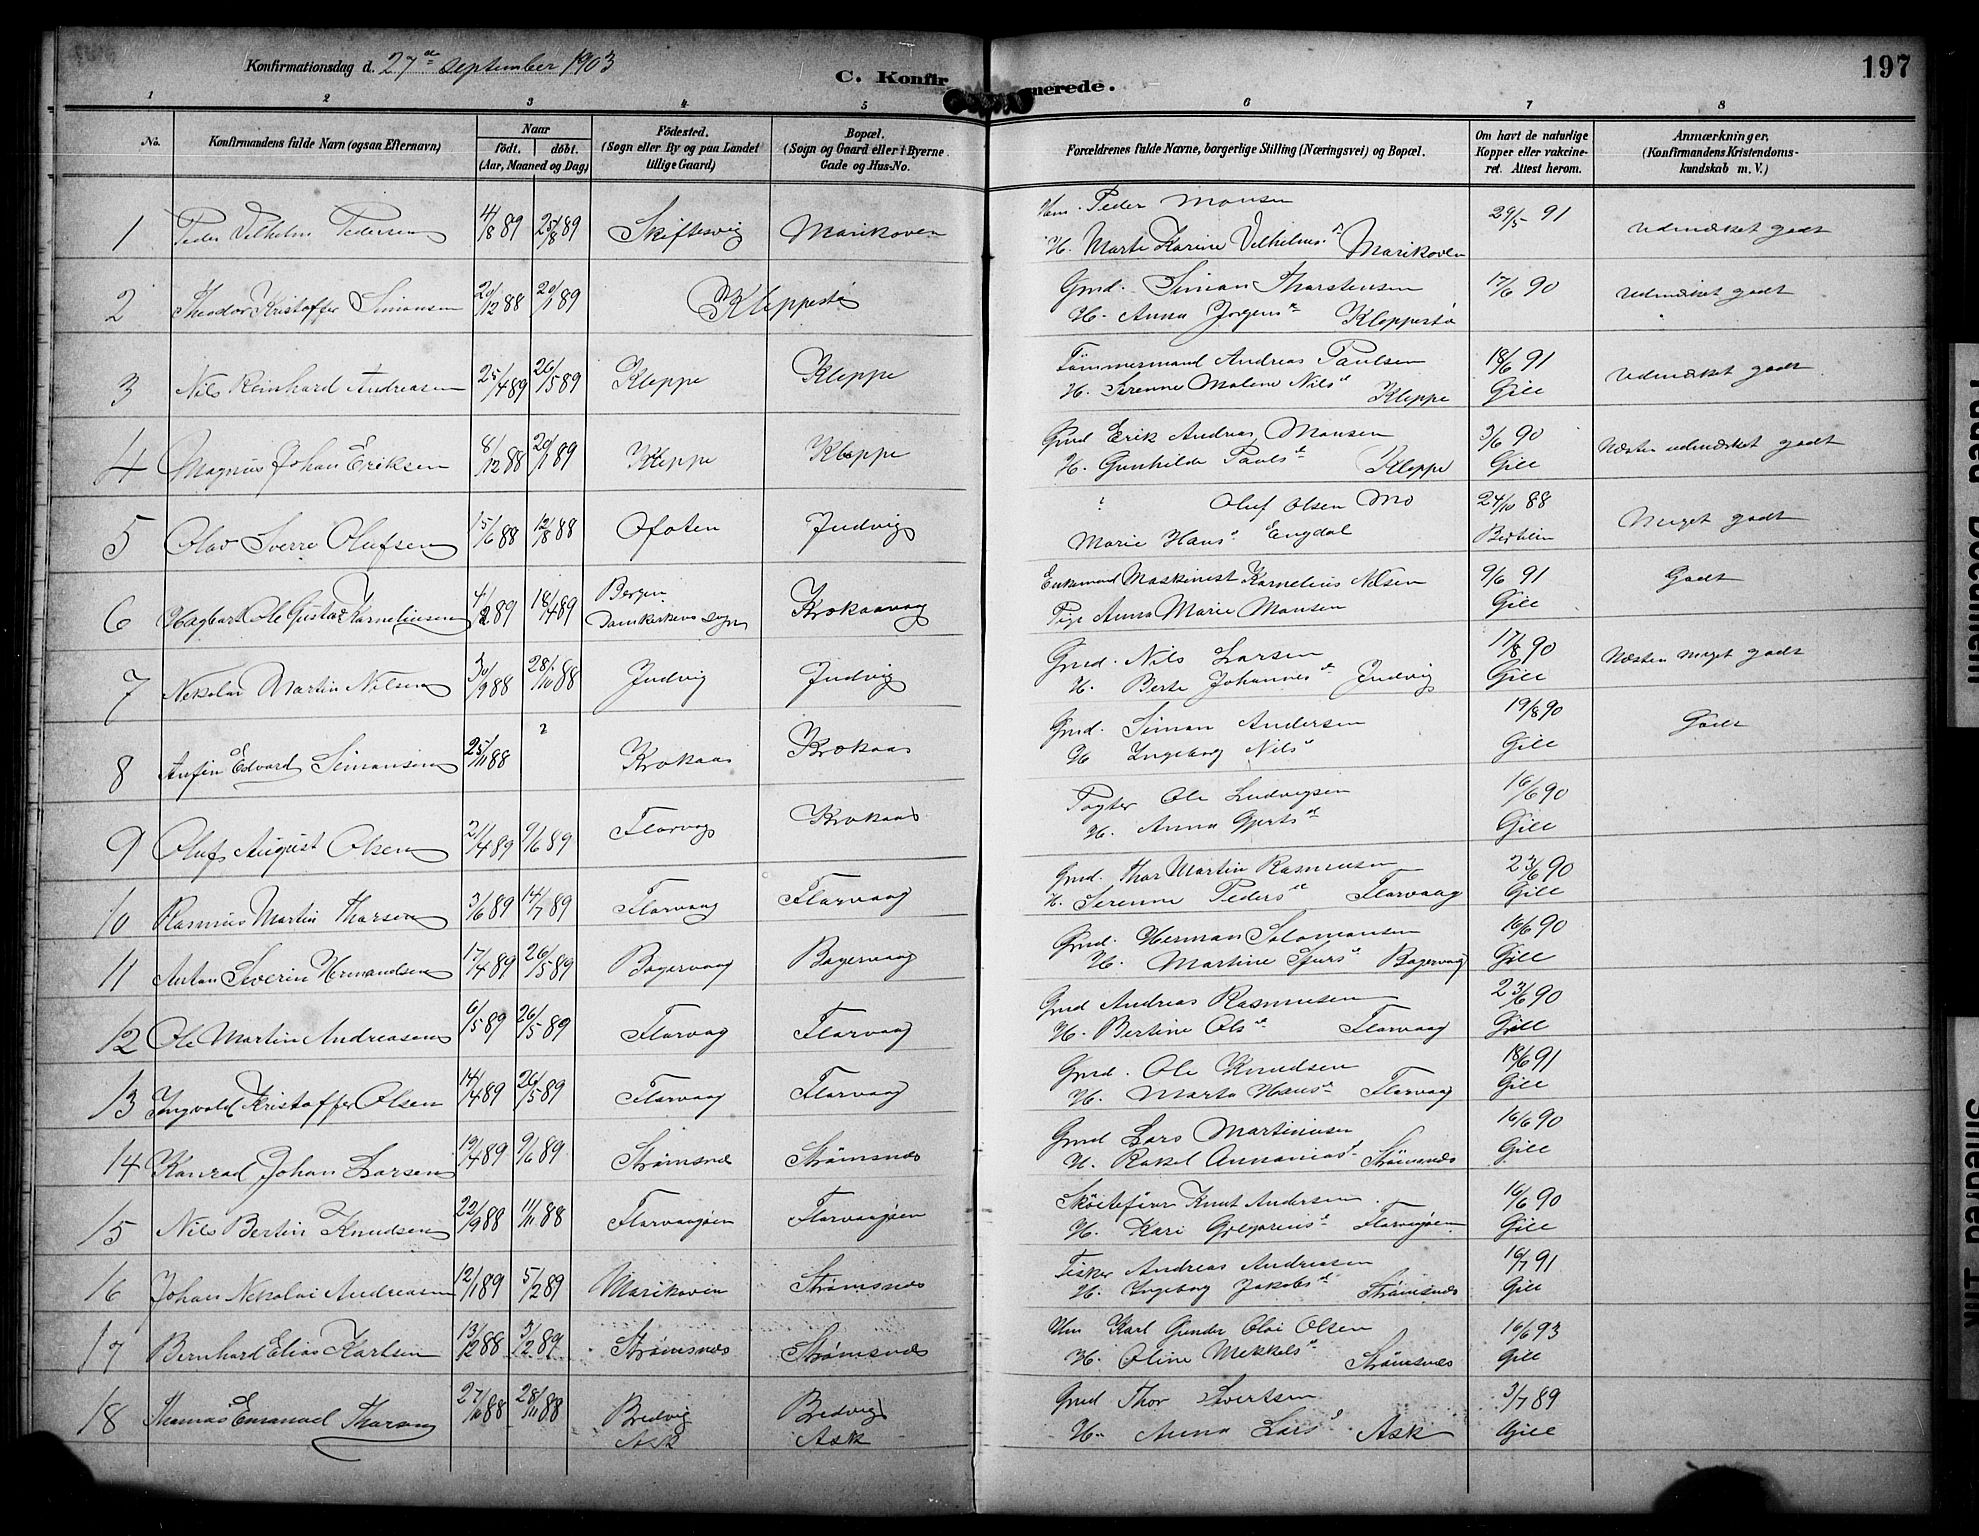 Konfirmationsdag d. 27de september 1903
C. Konfirmerede.
197
1 2 3 4 5 6 7 8
No.
Konfirmandens fulde Navn (ogsaa Efternavn)
Naar
født. døbt.
(Aar, Maaned og Dag)
Fødested.
(Sogn eller By og paa Landet
tillige Gaard)
Bopæl.
(Sogn og Gaard eller i Byerne
Gade og Hus-No.
Forældrenes fulde Navne, borgerlige Stilling (Næringsvei) og Bopæl.
Om havt de naturlige
Kopper eller vakcine-
ret. Attest herom.
Anmærkninger,
(Konfirmandens Kristendoms-
kundskab m. V.)
1 Peder Vilhelm Pedersen 4/8 89 25/8 89 Skiftesvig Marikoven
Hm. Peder Monsen 29/5 91 Udmærket godt
H. Marte Karine Vilhelms d Marikoven
2 Theodor Kristoffer Simonsen 20/12 88 20/1 89 Kleppestø
Gmd. Simon Thorstensen 17/6 90 Udmærket godt
H. Anna Jørgens d Kleppestø
3 Nils Reinhard Andreasen 25/4 89 26/5 89 Kleppe Kleppe
Tømmermand Andreas Paulsen 18/6 91 Udmærket godt
H. Serenne Malene Nils d Kleppe Gill
4 Magnus Johan Eriksen 8/12 88 20/1 89 Kleppe Kleppe
Gmd Erik Andreas Monsen 3/6 90 Næsten udmærket godt
H. Gunhilde Pauls d Kleppe Gill
5 Olav Sverre Olufsen 15/6 88 12/8 88 Ofoten Judvig
? Oluf Olsen Mo 24/10 88 Meget godt
Marie Hans d Engdal
6 Hagbart Ole Gustav Kornelinsen 4/2 89 18/4 89 Bergen Domkirkens sogn Krokaavag
Enkemand Maskinist Kornelius Nilsen 9/6 91 Godt
Pige Anna Marie Monsen Gill
7 Nekolai Martin Nilsen 30/9 88 28/10 88 Judvig Judvig
Gmd. Nils Larsen 17/8 90 Næsten meget godt
H. Berte Johannes d Judvig Gill
8 Anfin Edvard Simonsen 25/11 88 ? Krokaas Krokaas
Gmd. Simon Andersen 19/8 90 Godt
H Ingeborg Nils d Gill
9 Oluf August Olsen 21/4 89 9/6 89 Florvag Krokaas
Fogter Ole Ludvigsen 16/6 90
H. Anna Gjerts d Gill
10 Rasmus Martin Thorsen 3/6 89 14/7 89 Florvaag Florvaag
Gmd. Thor Martin Rasmusen 23/6 90
H. Serenne Peders d Florvaag Gill
11 Anton Severin Hermandsen 17/4 89 26/5 89 Bagervaag Bagervaag
Gmd. Herman Salomonsen 16/6 90
H. Martine Sjurs d Bagervaag Gill
12 Ole Martin Andreasen 6/5 89 26/5 89 Florvaag Florvaag
Gmd Andreas Rasmusen 23/6 90
H. Bertine Ols d Florvaag Gill
13 Ingvald Kristoffer Olsen 14/4 89 26/5 89 Florvaag Florvaag
Gmd. Ole Knudsen 18/6 91
H. Marta Hans d Florvaag Gill
14 Konrad Johan Larsen 19/4 89 9/6 89 Strømsnes Strømsnes
Gmd Lars Martinusen 16/6 90
H. Rakel Annanias d Strømsnes Gill
15 Nils Bertin Knudsen 22/9 88 11/11 88 Florvaagøen Florvaagøen
Skøitefører Knut Andersen 16/6 90
H. Kari Gregorius d Florvaagøen Gill
16 Johan Nekolai Andreasen 12/1 89 5/2 89 Marikoven Strømsnes
Fisker Andreas Andreasen 16/7 91
H. Ingeborg Jakobs d Strømsnes Gill
17 Bernhard Elias Karlsen 13/12 88 3/2 89 Strømsnes Strømsnes
Hm Karl Gunder Olai Olsen 16/6 93
H. Oline Mekkels d Strømsnes Gill
18 Thomas Emanuel Thorsen 27/10 88 28/11 88 Bredvig Ask Bredvig Ask
Gmd Thor Sivertsen 3/7 89
H. Anna Lars d Ask Gill